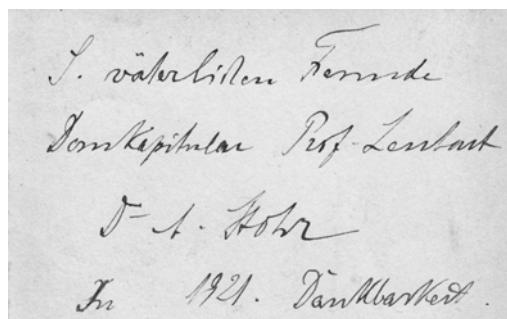 S. väterlichen Freunde
Domkapitular Prof. Lenhart
Dr A. Stohr
In 1921. Dankbarkeit.